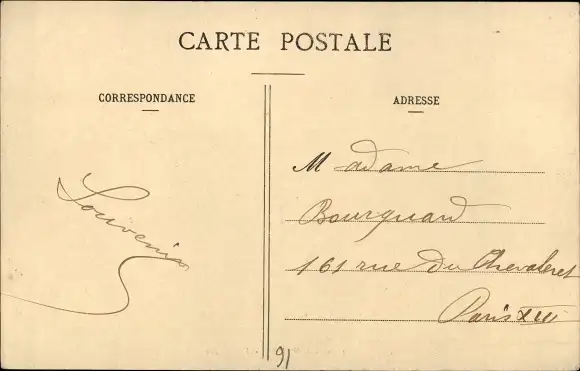 CARTE POSTALE
CORRESPONDANCE
ADRESSE
Souvenir
Madame
Bourquard
161 rue du Chevaleret
Paris XIII
91